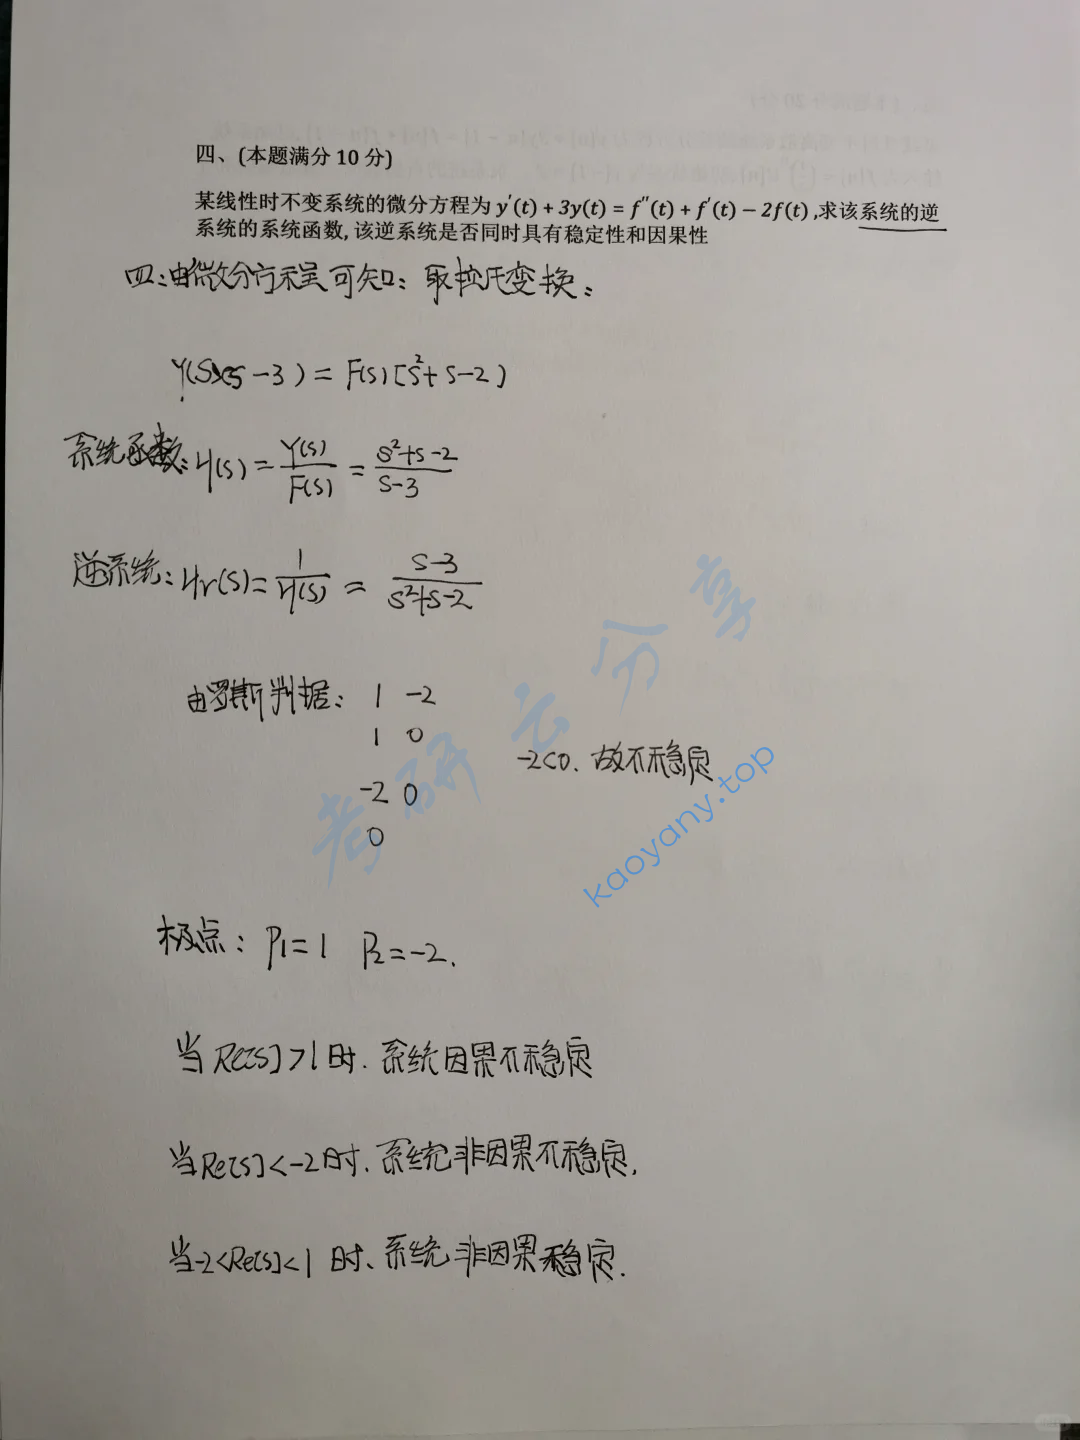 四、(本题满分 10 分)
某线性时不变系统的微分方程为 y′(t) + 3y(t) = f″(t) + f′(t) − 2f(t) ,求该系统的逆
系统的系统函数, 该逆系统是否同时具有稳定性和因果性
四:由微分方程可知: 取拉氏变换:
Y(S)(S-3) = F(S)[S²+S-2)
系统函数: H(S) = Y(S)/F(S) = S²+S-2/S-3
逆系统: Hr(S) = 1/H(S) = S-3/S²+S-2
由罗斯判据: 1 -2
1 0
-2<0. 故不稳定
-2 0
0
极点: P1=1 P2=-2.
当 Re[S]>1 时. 系统因果不稳定
当 Re[S]<-2 时. 系统非因果不稳定.
当-2<Re[S]<1 时、系统非因果稳定.
考研云分享
kaoyany.top